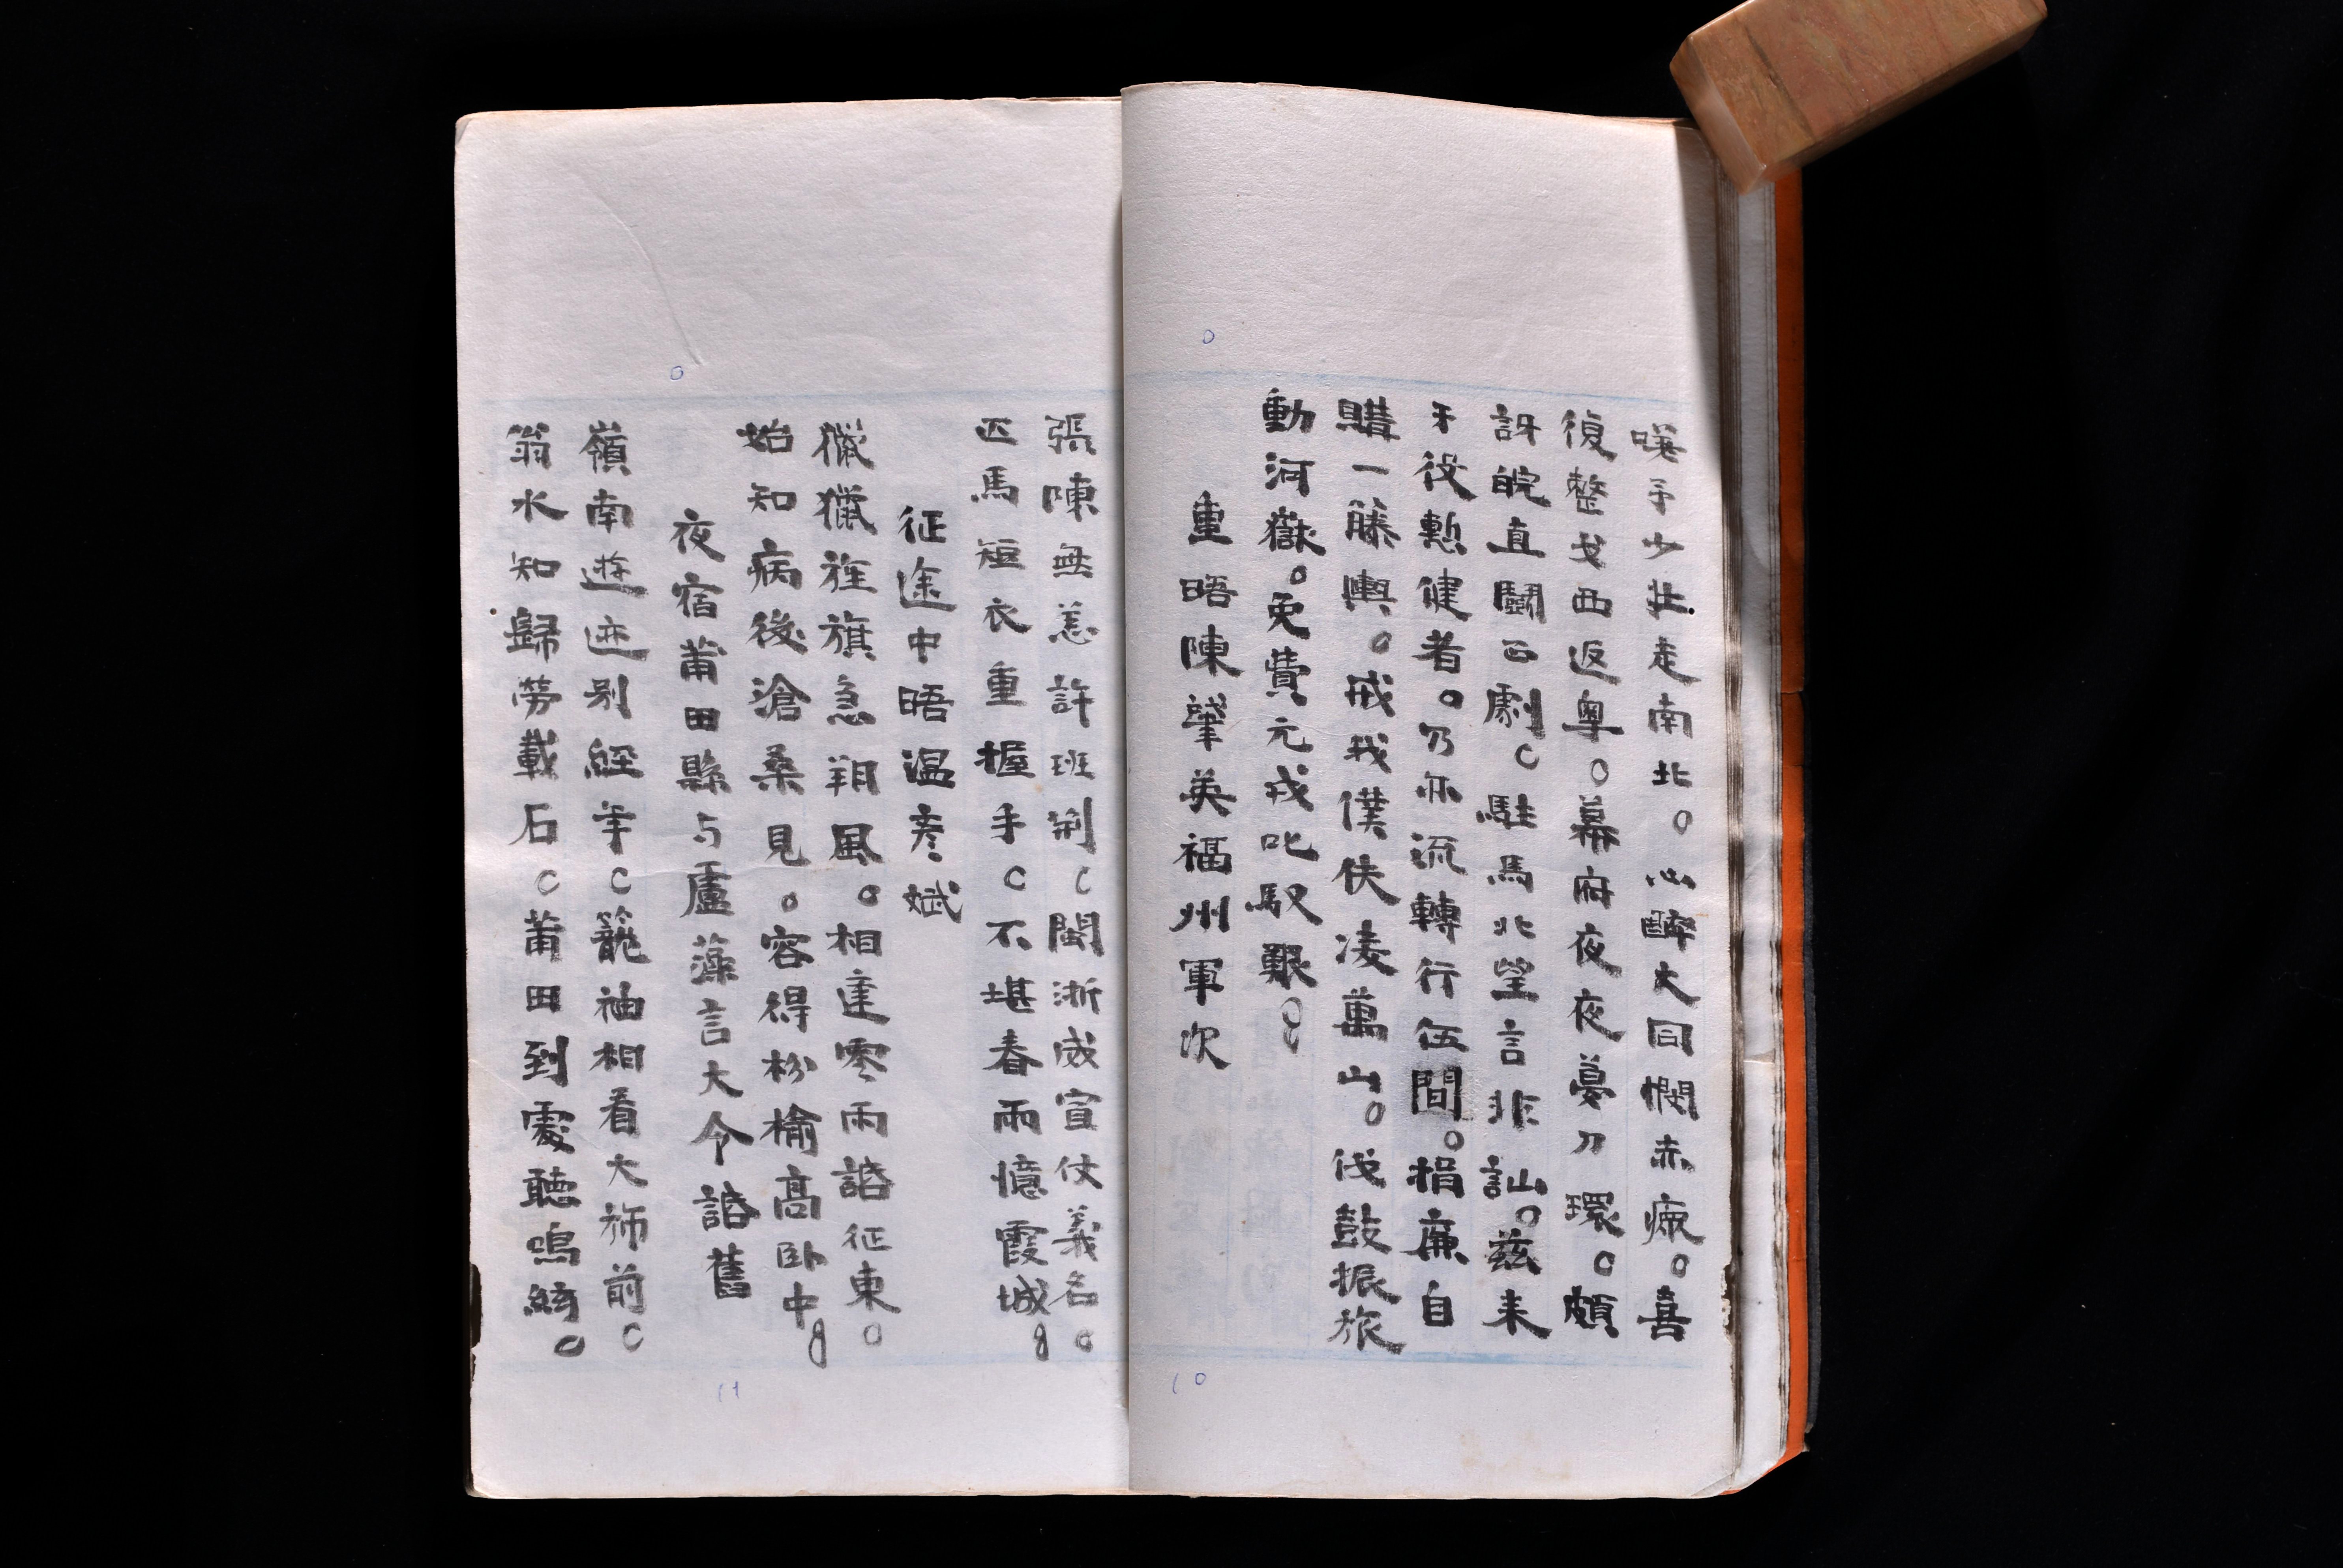 嘆予少壯走南北。心醉大同憫赤瘢。喜
復整戈西返粵。幕府夜夜夢刀環。頗
訝皖直鬪正劇。駐馬北望言非訕。茲来
于役慙健者。乃亦流轉行伍間。捐廉自
購一籐輿。戒我僕伕凌萬山。伐鼓振旅
動河嶽。免費元戎叱馭艱。
重晤陳肇英福州軍次
張陳無恙許班荆。閩浙威宣仗義名。
匹馬短衣重握手。不堪春雨憶霞城。
征途中晤温彦斌
獵獵旌旗急翔風。相逢零雨諳征東。
始知病後滄桑見。容得枌榆高卧中。
夜宿莆田縣与盧藻言大令諳舊
嶺南遊迹别經年。籠袖相看大斾前。
翁水知歸勞載石。莆田到處聽鳴絃。
10
11